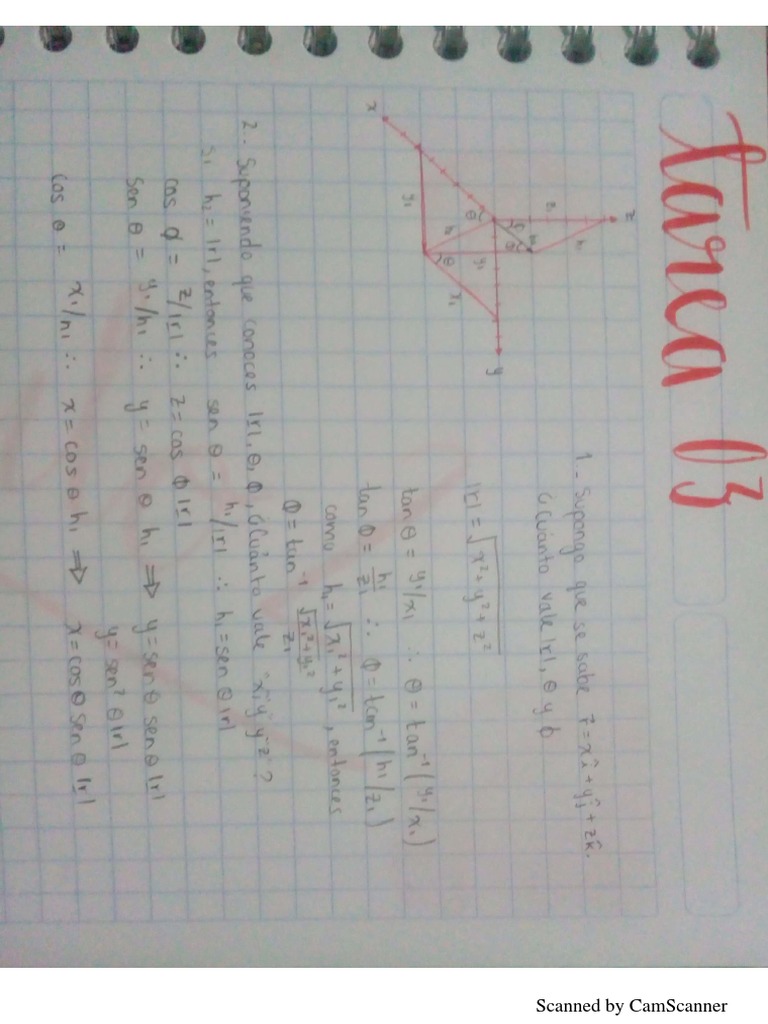 tarea 03
z
z₁
h₁
h₂
φ
θ
y₁
y
θ
h₁
θ
y₁
x₁
x
1.- Supongo que se sabe r̄ = xî + yĵ + zk̂.
¿Cuánto vale |r|, θ y φ
|r| = √x² + y² + z²
tan θ = y₁/x₁ ∴ θ = tan⁻¹ (y₁/x₁)
tan Φ = h₁/z₁ ∴ Φ = tan⁻¹ (h₁/z₁)
como h₁ = √x₁² + y₁², entonces
Φ = tan⁻¹ √x₁² + y₁²/z₁
2.- Suponiendo que conoces |r|, θ, Φ, ¿Cuánto vale "x", "y" y "z"?
Si h₂ = |r|, entonces sen θ = h₁/|r| ∴ h₁ = sen θ |r|
cos ϕ = z/|r| ∴ z = cos ϕ |r|
sen θ = y₁/h₁ ∴ y = sen θ h₁ ⇒ y = sen θ sen θ |r|
y = sen² θ |r|
cos θ = x₁/h₁ ∴ x = cos θ h₁ ⇒ x = cos θ sen θ |r|
Scanned by CamScanner